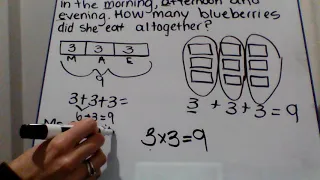 In the morning, afternoon and
evening. How many blueberries
did she eat altogether?
3 3 3
M A E
9
3+3+3=
6+3=9
3 + 3 + 3 = 9
3x3=9